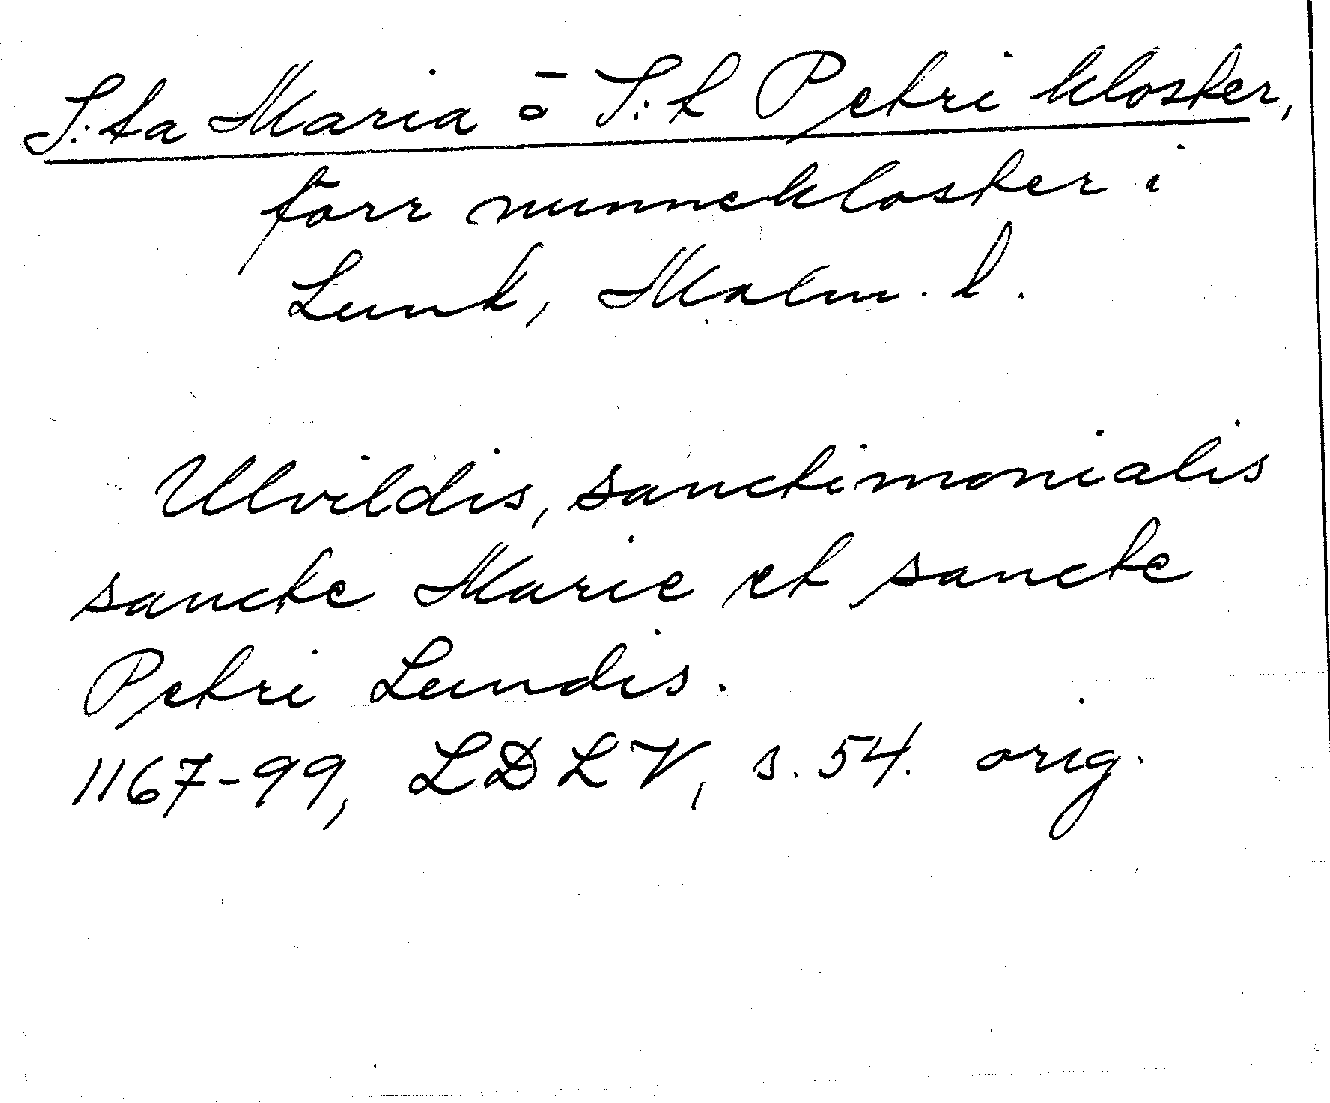 S:ta Maria o S:t Petri kloster,
förr nunnekloster i
Lund, Malm. l.
Ulvildis, sanctimonialis
sancte Marie et sancte
Petri Lundis.
1167-99, LDLV, s. 54. orig.